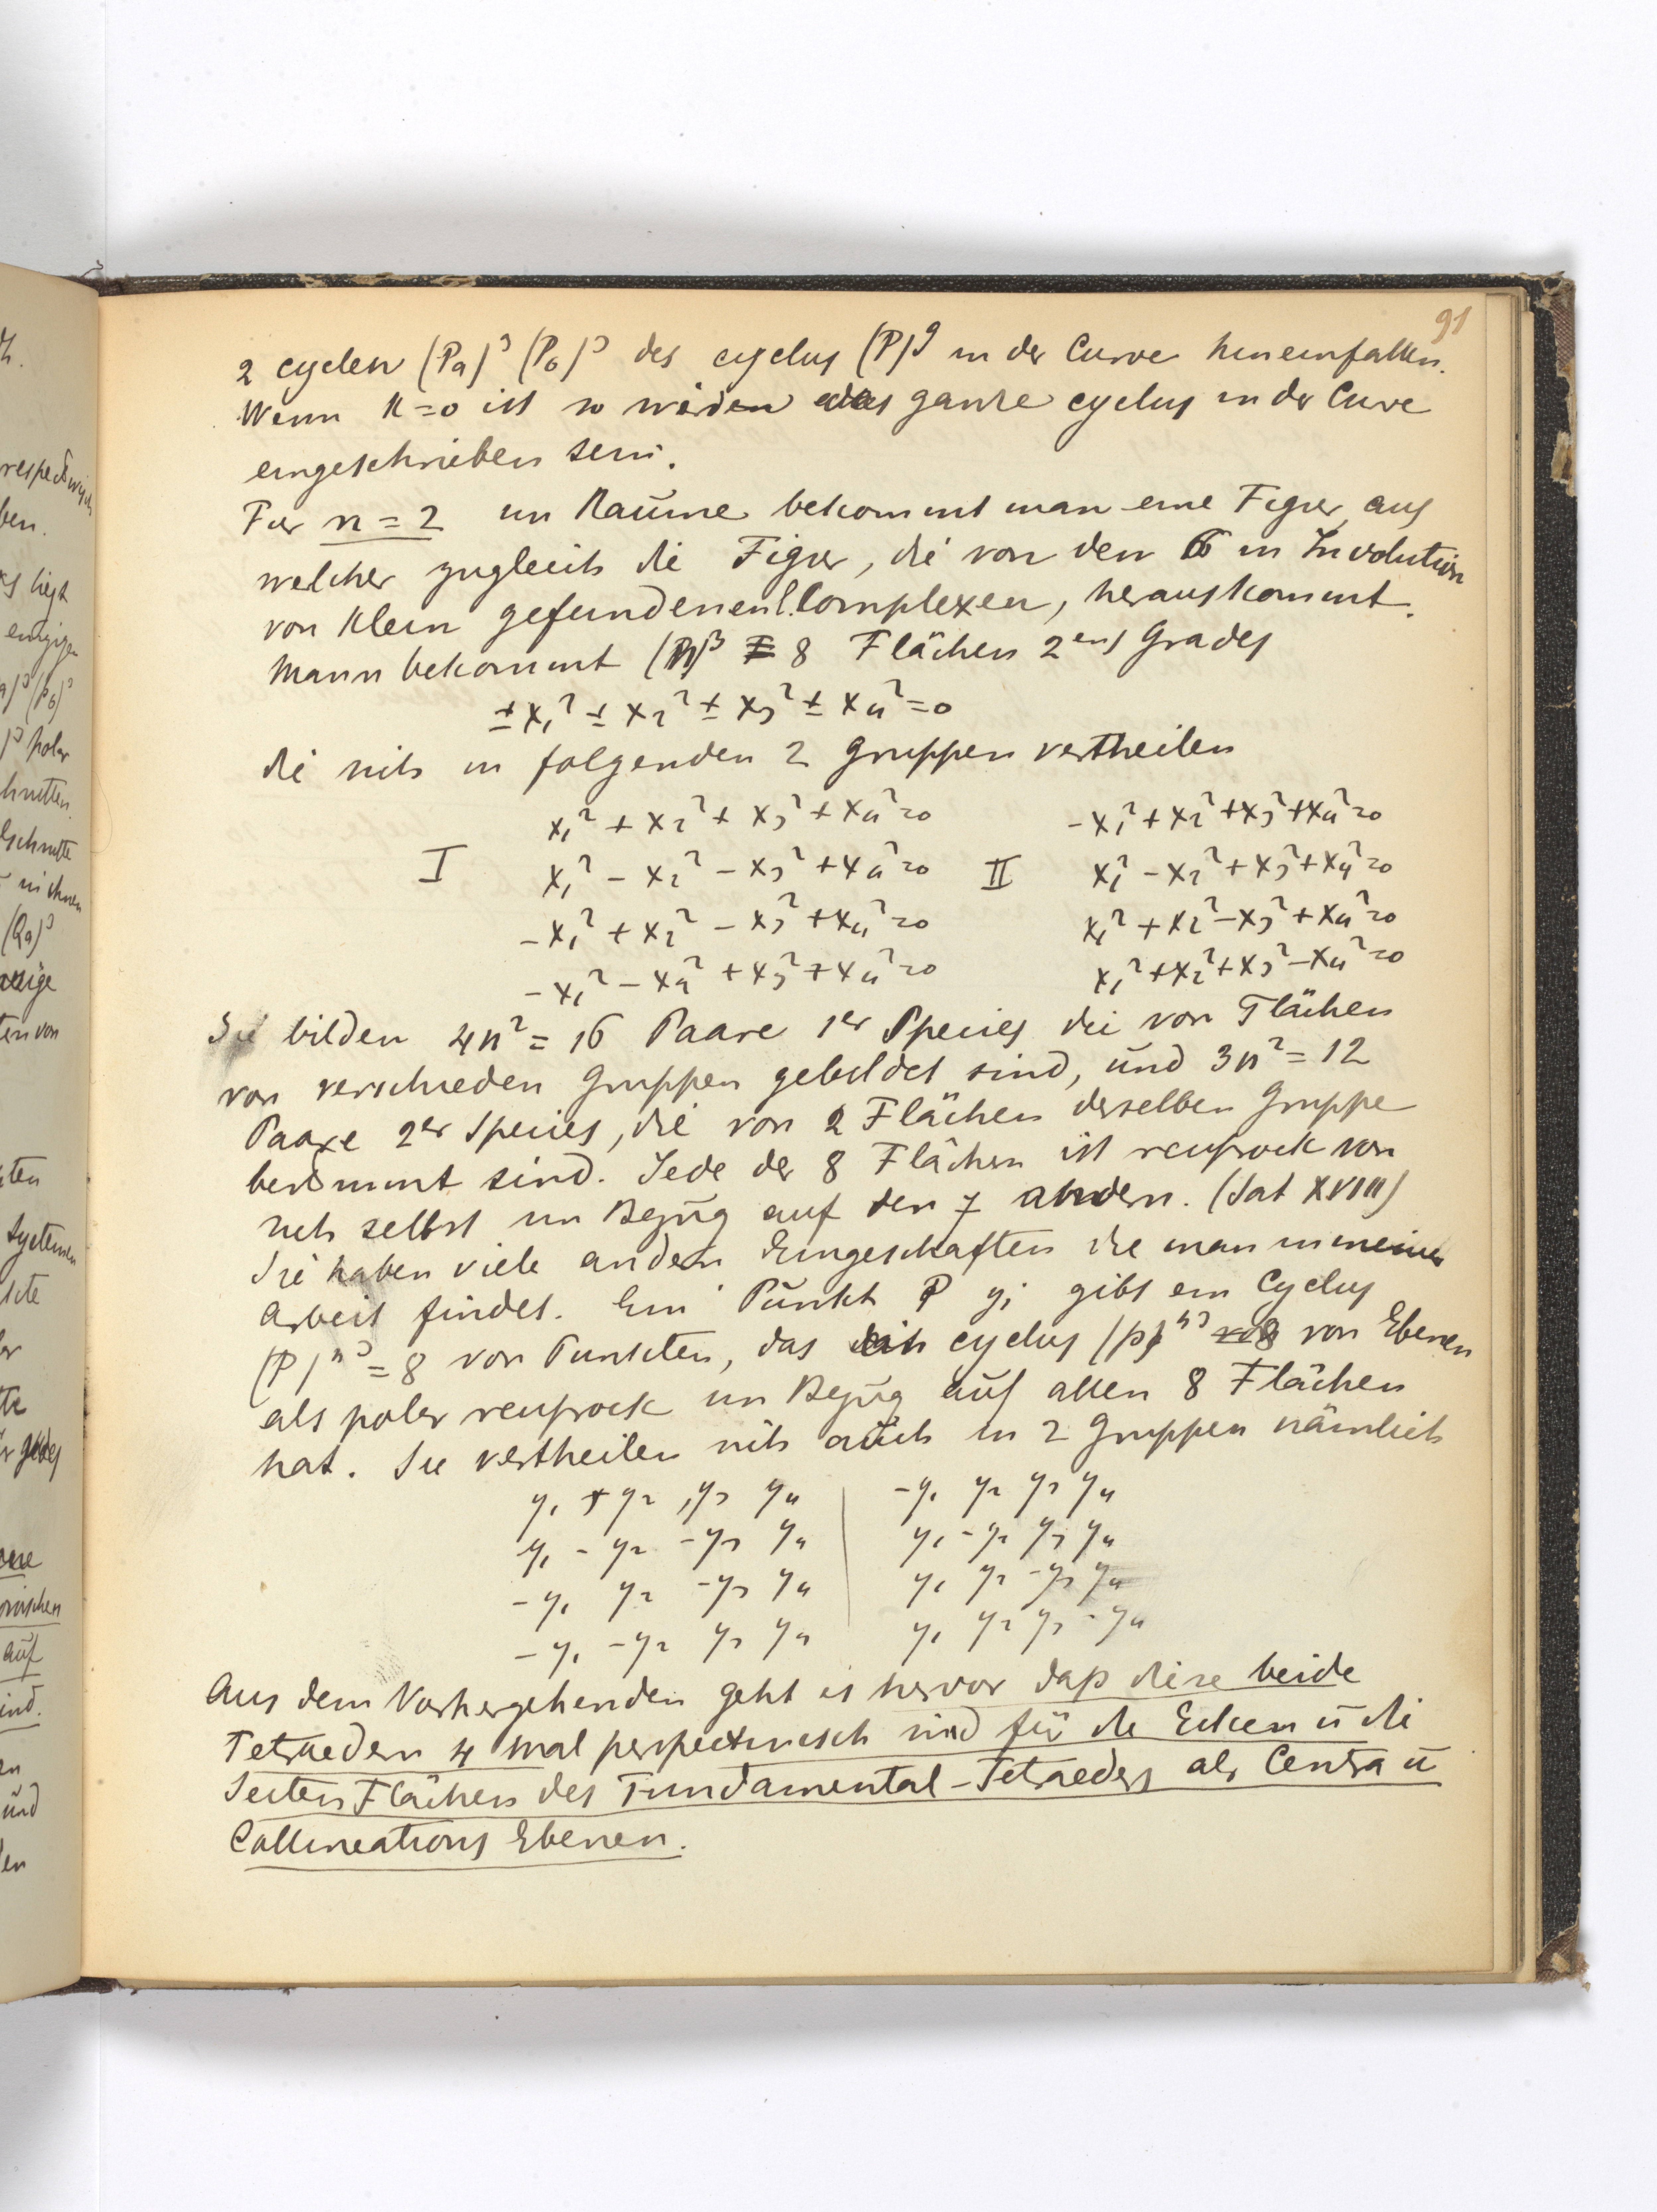 91
2 cyclen (Pa)³ (Pb)³ des cyclus (P)⁹ in der Curve hineinfallen.
Wenn K=0 ist so werden das ganze cyclus in der Curve
eingeschrieben sein.
Für n=2 im Raüme bekommt man eine Figur aus
welcher zugleich die Figur, die von den 6 in Involution
von Klein gefundenen l. Complexen, herauskommt.
Mann bekommt 8 Flächen 2ens Grades
±x₁² ± x₂² ± x₃² ± x₄² = 0
die sich in folgenden 2 Gruppen vertheilen
x₁² + x₂² + x₃² + x₄² = 0 -x₁² + x₂² + x₃² + x₄² = 0
I x₁² - x₂² - x₃² + x₄² = 0 II x₁² - x₂² + x₃² + x₄² = 0
-x₁² + x₂² - x₃² + x₄² = 0 x₁² + x₂² - x₃² + x₄² = 0
-x₁² - x₂² + x₃² + x₄² = 0 x₁² + x₂² + x₃² - x₄² = 0
Sie bilden 4n² = 16 Paare 1er Species die von Flächen
von verschieden Gruppen gebildet sind, ünd 3n² = 12
Paare 2er Species, die von 2 Flächen derselben Gruppe
bestimmt sind. Jede der 8 Flächen ist reciprock von
sich selbst im Bezüg auf den 7 andern. (Sat XVIII)
Sie haben viele andern Eingeschaften die man in meiner
Arbeit findet. Ein Pünkt P yᵢ gibt ein Cyclus
(P)ⁿ³ = 8 von Punkten, das ein cyclus (p)ⁿ³ von Ebenen
als polar reciprock im Bezüg aüf allen 8 Flächen
hat. Sie vertheilen sich aüch in 2 Gruppen nämlich
y₁ + y₂ , y₃ y₄ | -y₁ y₂ y₃ y₄
y₁ - y₂ - y₃ y₄ | y₁ - y₂ y₃ y₄
- y₁ y₂ - y₃ y₄ | y₁ y₂ - y₃ y₄
- y₁ - y₂ y₃ y₄ | y₁ y₂ y₃ - y₄
Aus dem Vorhergehenden geht es hervor daß diese beide
Tetraedern 4 mal perspectivisch sind für die Ecken ü die
Seiten Flächen des Fundamental-Tetraeders als Centra ü
Collineations Ebenen.